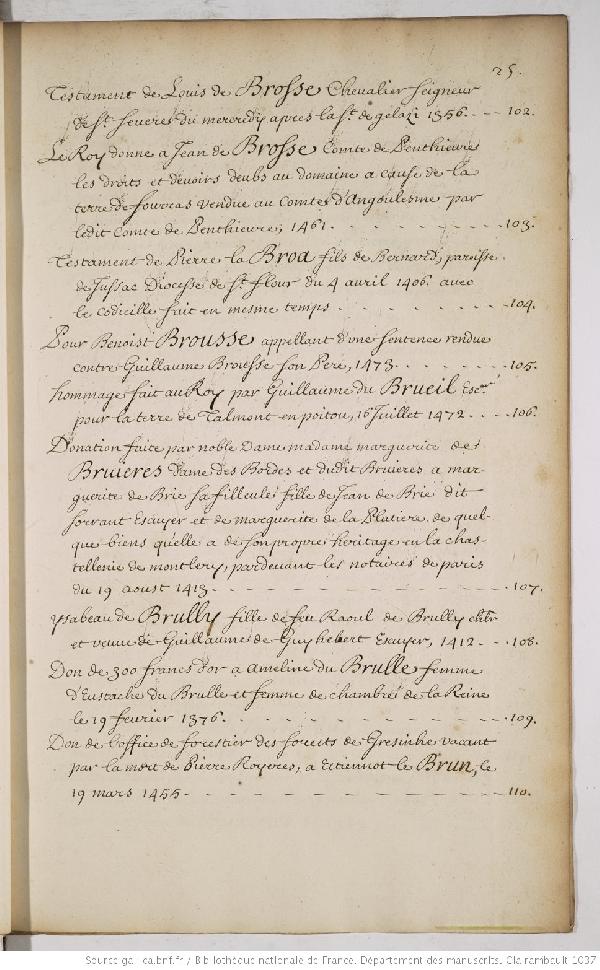 25.
Testament de Louis de Brosse Chevalier seigneur
de St. Severe du mercredy apres la St. de gelazi 1356. - - - 102.
Le Roy donne a Jean de Brosse Comte de Penthieure
les droits et devoirs deubs au domaine a cause de la
terre de fourras vendue au Comte d'Angoulesme par
ledit Comte de Penthieure, 1461. - - - - - - - - 103.
Testament de Pierre la Broa fils de Bernard, paroisse
de Jussac Diocese de St. flour du 4 avril 1406. avec
le codicille fait en mesme temps - - - - - - - - 104.
Pour Benoist Brousse appellant d'une sentence rendue
contre Guillaume Brousse son Pere, 1473. - - - - - - 105.
hommage fait au Roy par Guillaume du Brueil Escr.
pour la terre de Talmont en poitou, 16 Juillet 1472. - - - 106.
Donation faite par noble Dame madame marguerite de
Bruieres Dame des Bordes et dudit Bruieres a mar-
guerite de Brie sa filleule fille de Jean de Brie dit
sorvant Escuyer et de marguerite de la Platiere, de quel-
que biens qu'elle a de son propre heritage en la chas-
tellenie de montlery, pardevant les notaires de paris
du 19 aoust 1413. - - - - - - - - - - 107.
ysabeau de Brully fille de feu Raoul de Brully chlr
et veuve de Guillaume de Guyhebert Escuyer, 1412 - - - 108.
Don de 300 francs d'or a Ameline du Brulle femme
d'Eustache du Brulle et femme de chambre de la Reine
le 19 fevrier 1376. - - - - - - - - - - 109.
Don de l'office de forestier des forests de Gresinhe vacant
par la mort de Pierre Royeres, a Etiennot le Brun, le
19 mars 1455 - - - - - - - - - - 110.
Source gallica.bnf.fr / Bibliothèque nationale de France. Département des manuscrits. Clairambault 1037